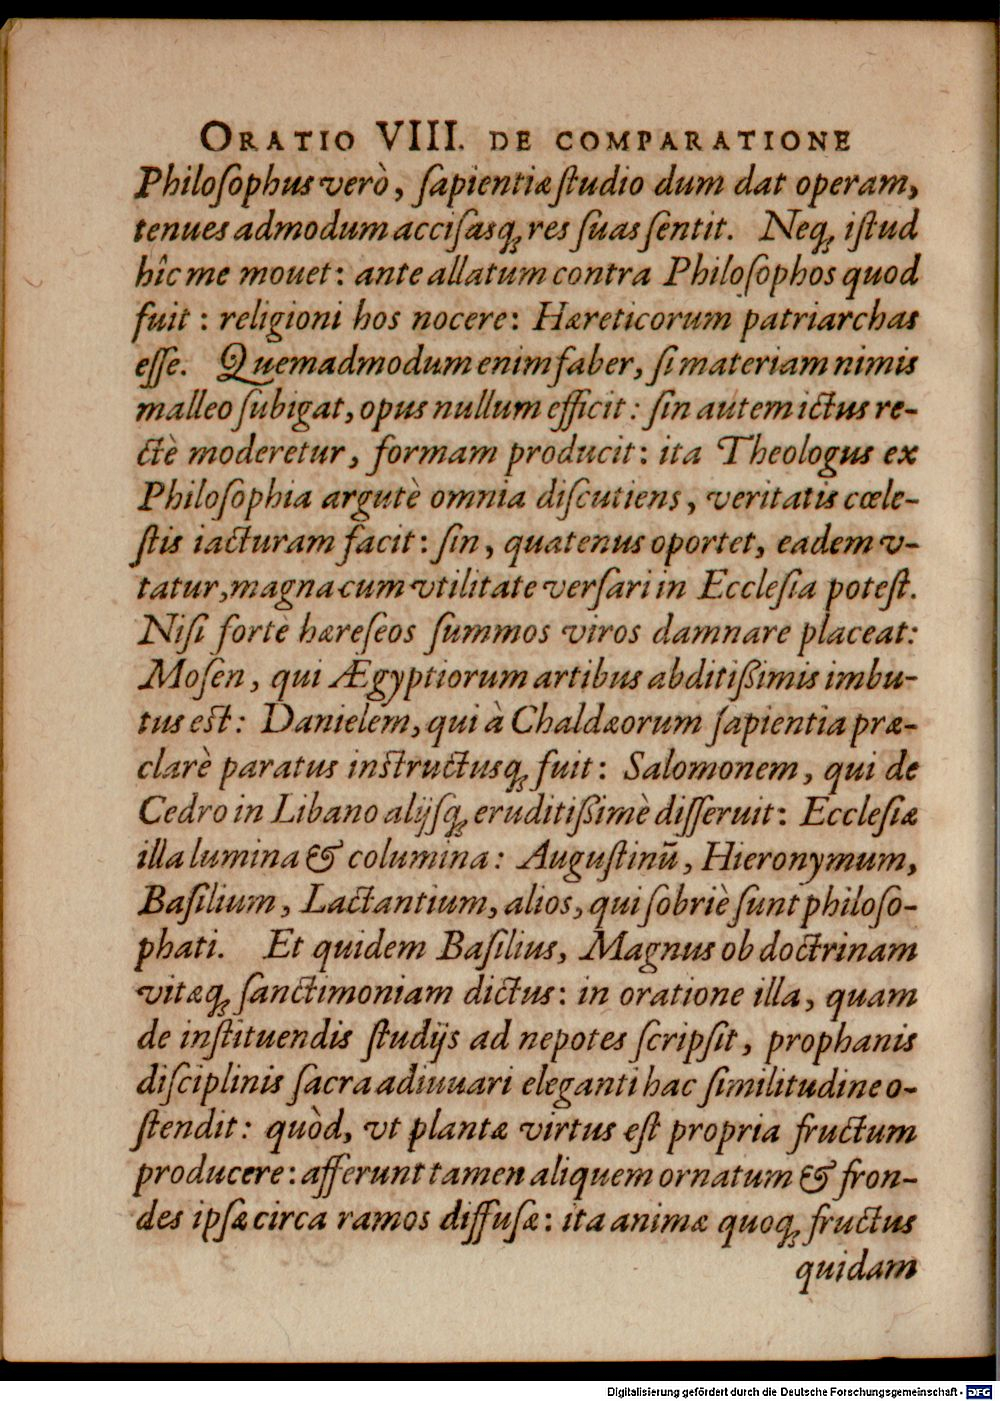 ORATIO VIII. DE COMPARATIONE
Philoſophus verò, ſapientiæ ſtudio dum dat operam,
tenues admodum acciſasq́; res ſuas ſentit. Neq́; iſtud
hîc me mouet: ante allatum contra Philoſophos quod
fuit: religioni hos nocere: Hæreticorum patriarchas
eſſe. Quemadmodum enim faber, ſi materiam nimis
malleo ſubigat, opus nullum efficit: ſin autem ictus re-
ctè moderetur, formam producit: ita Theologus ex
Philoſophia argutè omnia diſcutiens, veritatis cœle-
ſtis iacturam facit: ſin, quatenus oportet, eadem v-
tatur, magna cum vtilitate verſari in Eccleſia poteſt.
Niſi fortè hæreſeos ſummos viros damnare placeat:
Moſen, qui Ægyptiorum artibus abditißimis imbu-
tus est: Danielem, qui à Chaldæorum ſapientia præ-
clarè paratus instructusq́; fuit: Salomonem, qui de
Cedro in Libano alijſq́; eruditißimè diſſeruit: Eccleſiæ
illa lumina & columina: Auguſtinū, Hieronymum,
Baſilium, Lactantium, alios, qui ſobriè ſunt philoſo-
phati. Et quidem Baſilius, Magnus ob doctrinam
vitæq́; ſanctimoniam dictus: in oratione illa, quam
de inſtituendis ſtudijs ad nepotes ſcripſit, prophanis
diſciplinis ſacra adiuuari eleganti hac ſimilitudine o-
ſtendit: quòd, vt plantæ virtus eſt propria fructum
producere: afferunt tamen aliquem ornatum & fron-
des ipſæ circa ramos diffuſæ: ita animæ quoq́; fructus
quidam
Digitalisierung gefördert durch die Deutsche Forschungsgemeinschaft - DFG